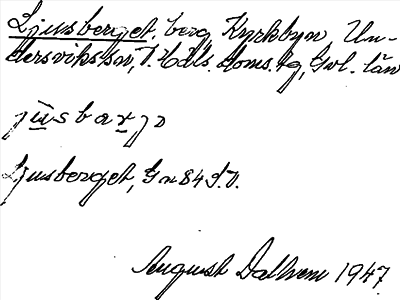 Ljusberget, berg, Kyrkbyn, Un-
dersviks sn, V. Häls. doms. tg, Gvl. län
jusbarjo
Ljusberget, Gn 84 S.V.
August Dalhem 1947